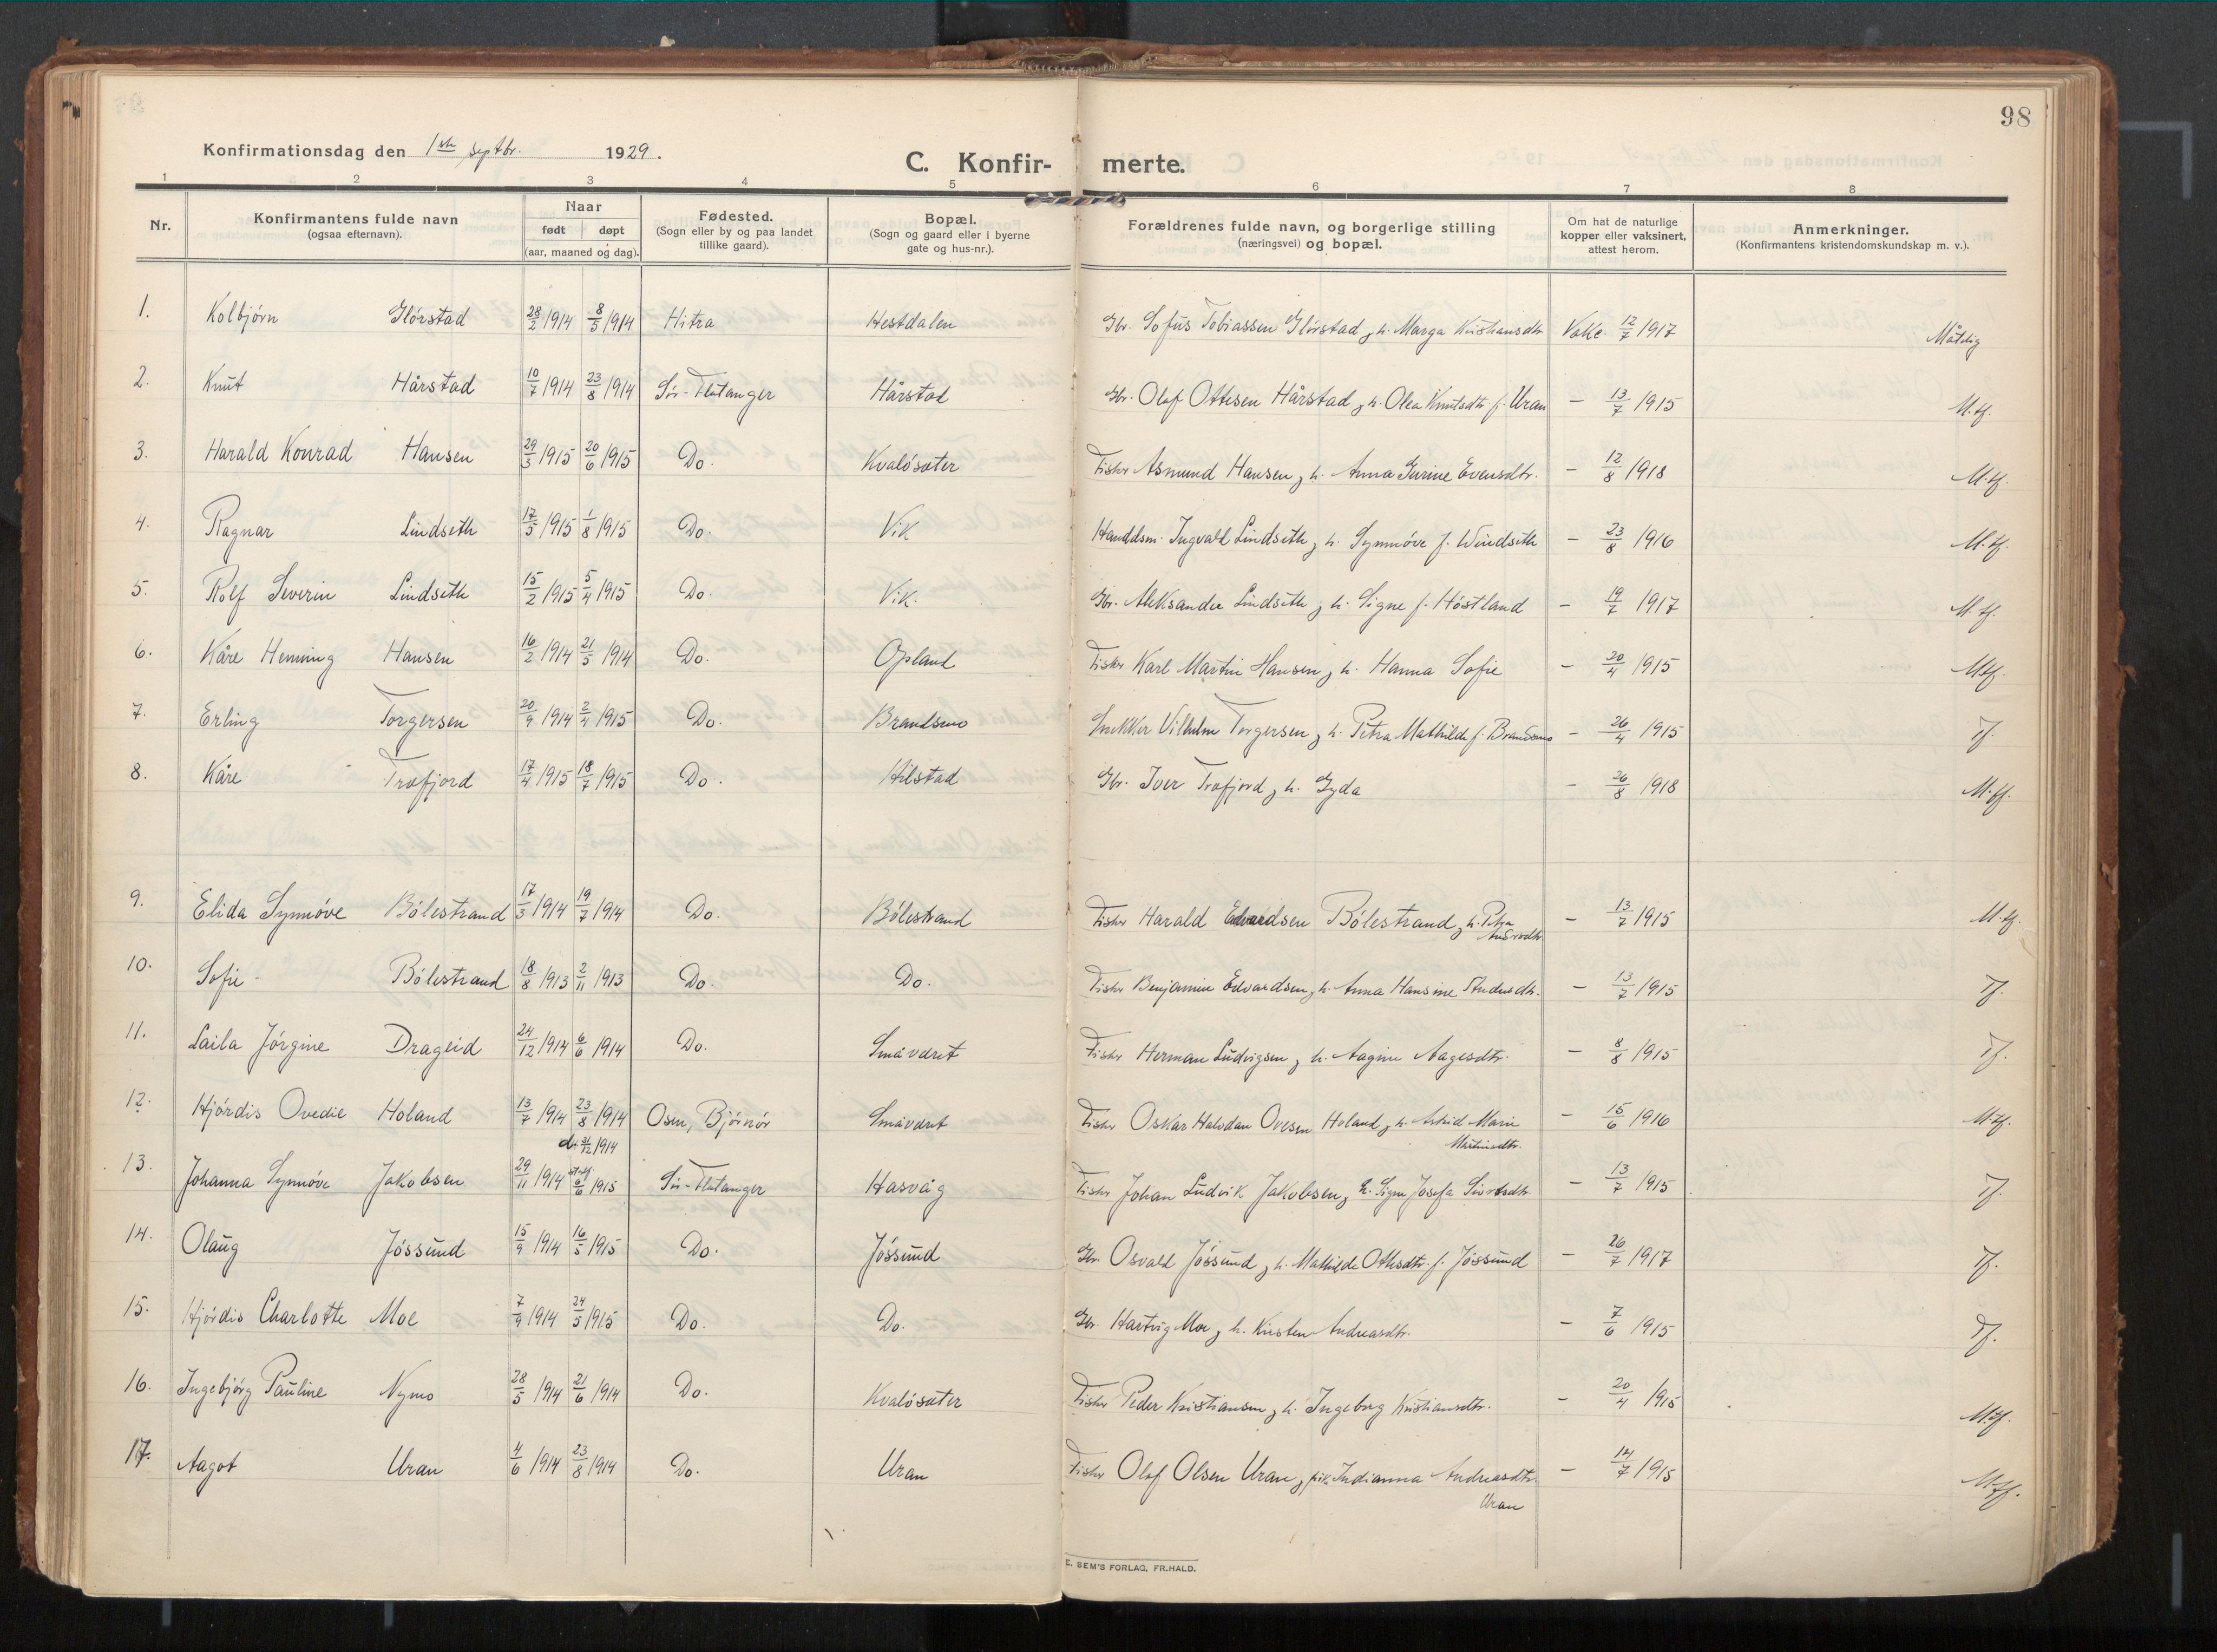 98
Konfirmationsdag den 1ste septbr. 1929.
C. Konfir- merte.
1 2 3 4 5 6 7 8
Nr. Konfirmantens fulde navn (ogsaa efternavn). Naar født døpt (aar, maaned og dag). Fødested. (Sogn eller by og paa landet tillike gaard). Bopæl. (Sogn og gaard eller i byerne gate og hus-nr.). Forældrenes fulde navn, og borgerlige stilling (næringsvei) og bopæl. Om hat de naturlige kopper eller vaksinert, attest herom. Anmerkninger. (Konfirmantens kristendomskundskap m. v.).
1. Kolbjørn Glørstad 28/2 1914 8/5 1914 Hitra Hestdalen Gbr. Sofus Tobiassen Glørstad, h. Marga Kristiansdtr Vakc. 12/7 1917 Måtelig
2. Knut Hårstad 10/7 1914 23/8 1914 Sør-Flatanger Hårstad Gbr. Olaf Ottesen Hårstad, h. Olea Knutsdtr f. Uran - 13/7 1915 M.tf.
3. Harald Konrad Hansen 29/3 1915 20/6 1915 Do. Kvaløsæter Fisker Asmund Hansen, h. Anna Gurine Evensdtr. - 12/8 1918 M.tf.
4. Ragnar Lindseth 17/5 1915 1/8 1915 Do. Vik Handelsm. Ingvald Lindseth, h. Synnøve f. Windseth - 23/8 1916 M.tf.
5. Rolf Severin Lindseth 15/2 1915 5/4 1915 Do. Vik. Gbr. Aleksander Lindseth, h. Signe f. Høstland - 19/7 1917 M.tf.
6. Kåre Henning Hansen 16/2 1914 21/5 1914 Do. Opland Fisker Karl Martin Hansen, h. Hanna Sofie - 20/4 1915 M.tf.
7. Erling Torgersen 20/9 1914 2/4 1915 Do. Brandsmo Snekker Vilhelm Torgersen, h. Petra Mathilde f. Brandsmo - 26/4 1915 Tf.
8. Kåre Træfjord 17/4 1915 18/7 1915 Do. Hilstad Gbr. Iver Træfjord, h. Gyda - 26/8 1918 M.tf.
9. Elida Synnøve Bølestrand 17/3 1914 19/7 1914 Do. Bølestrand Fisker Harald Edvardsen Bølestrand, h. Petra - 13/7 1915 M.tf.
10. Sofie - Bølestrand 18/8 1913 2/11 1913 Do. Do. Fisker Benjamin Edvardsen, h. Anna Hansine - 13/7 1915 Tf.
11. Laila Jørgine Drageid 24/12 1914 6/6 1914 Do. Småværet Fisker Herman Ludvigsen, h. Aagine Aagesdtr. - 8/8 1915 Tf.
12. Hjørdis Ovedie Holand 13/7 1914 23/8 1914 Osen, Bjørnør Småværet Fisker Oskar Halvdan Ovesen Holand, h. Astrid Marie - 15/6 1916 M.tf.
Martinsdtr.
13. Johanna Synnøve Jakobsen 29/11 1914 6/6 1915 Sør-Flatanger Hasvåg Fisker Johan Ludvik Jakobsen, h. Signe Josefa Sivertsdtr - 13/7 1915 Tf.
14. Olaug Jøssund 15/9 1914 16/5 1915 Do. Jøssund Gbr. Osvald Jøssund, h. Mathilde Ottesdtr. f. Jøssund - 26/7 1917 Tf.
15. Hjørdis Charlotte Moe 7/9 1914 24/5 1915 Do. Do. Gbr. Hartvig Moe, h. Kirsten Andreasdtr. - 7/6 1915 Tf.
16. Ingebjørg Pauline Nymo 28/5 1914 21/6 1914 Do. Kvaløsæter Fisker Peder Kristiansen, h. Ingeborg Kristiansdtr. - 20/4 1915 M.tf.
17. Aagot Uran 4/6 1914 23/8 1914 Do. Uran Fisker Olaf Olsen Uran, pik. Indianna Andreasdtr. - 14/7 1915 M.tf.
Uran
E. SEM'S FORLAG, FR.HALD.